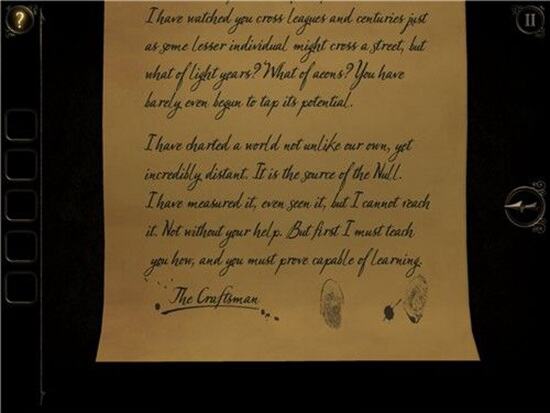 ?
I have watched you cross leagues and centuries just
as some lesser individual might cross a street, but
what of light years? What of aeons? You have
barely even begun to tap its potential.
I have charted a world not unlike our own, yet
incredibly distant. It is the source of the Null.
I have measured it, even seen it, but I cannot reach
it. Not without your help. But first I must teach
you how, and you must prove capable of learning.
The Craftsman